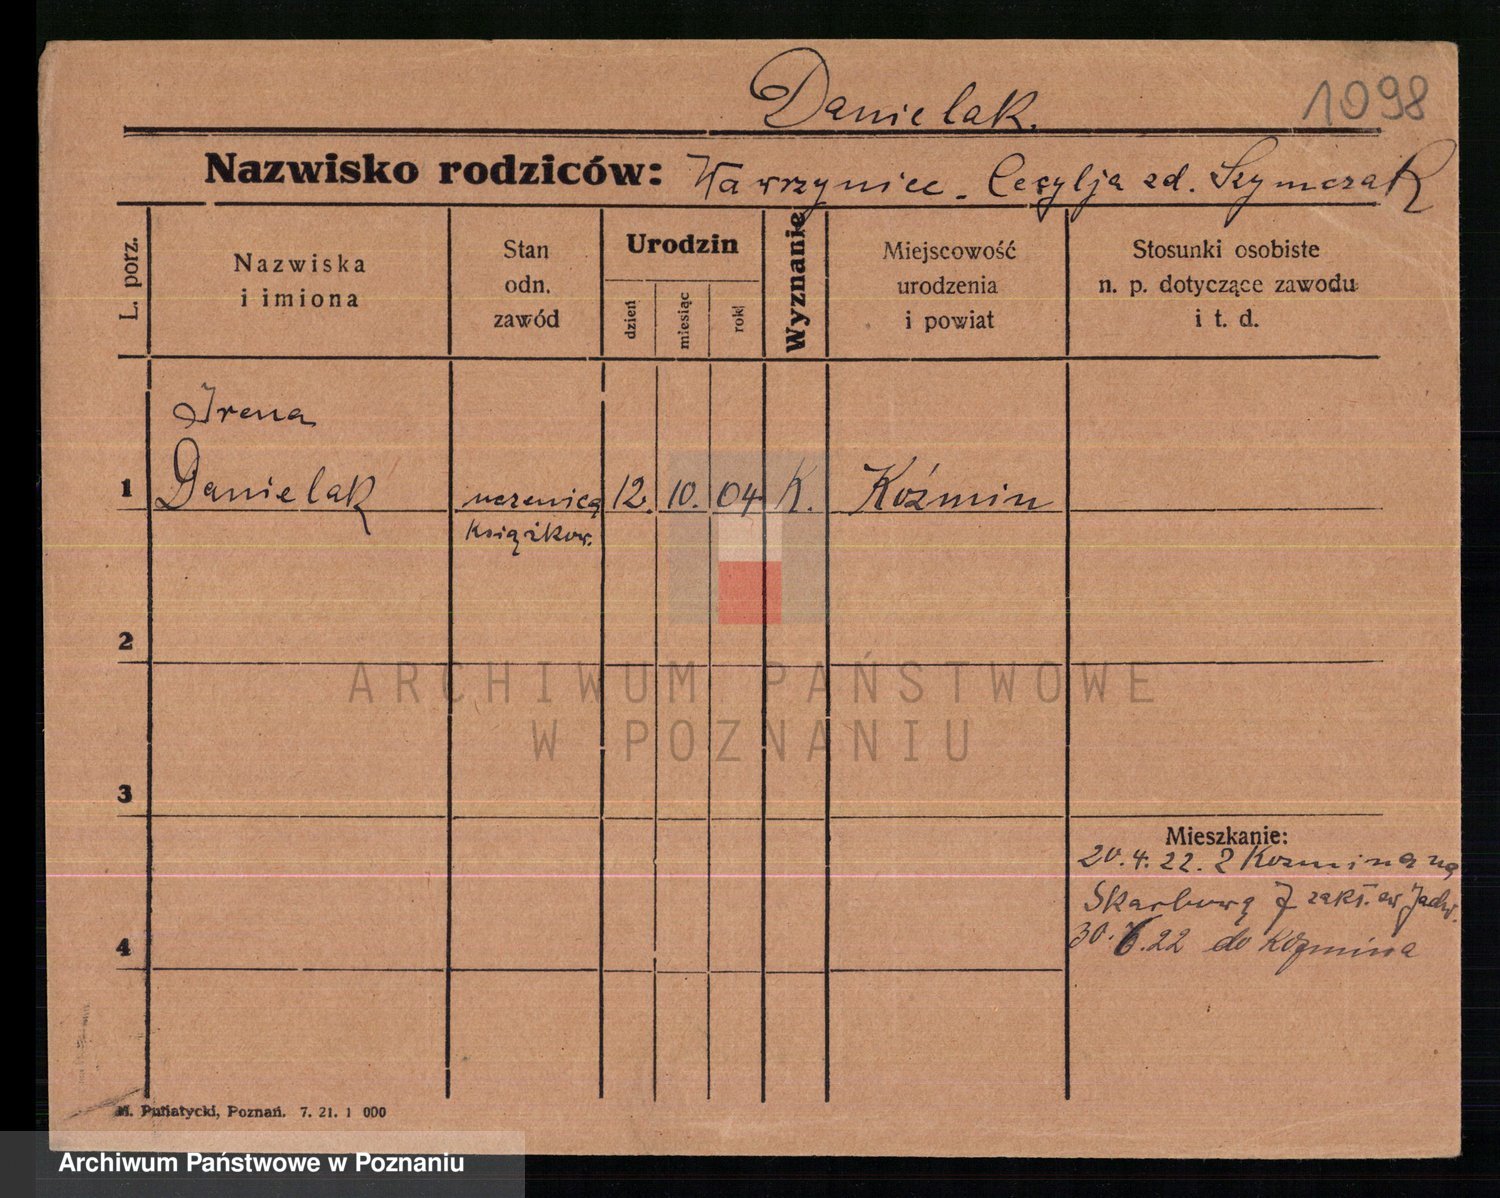 Danielak.
1098
Nazwisko rodziców: Wawrzyniec - Cecylja zd. Szymczak
L. porz.
Nazwiska
i imiona
Stan
odn.
zawód
Urodzin
dzień
miesiąc
rok
Wyznanie
Miejscowość
urodzenia
i powiat
Stosunki osobiste
n. p. dotyczące zawodu
i t. d.
Irena
1 Danielak uczenica 12. 10. 04 K. Koźmin
książkow.
2
ARCHIWUM PAŃSTWOWE
W POZNANIU
3
Mieszkanie:
20.4.22. z Kozmina na
Skarbową 7 zakł. św Jadw.
4
30.6.22 do Kozmina
M. Putiatycki, Poznań. 7. 21. 1 000
Archiwum Państwowe w Poznaniu